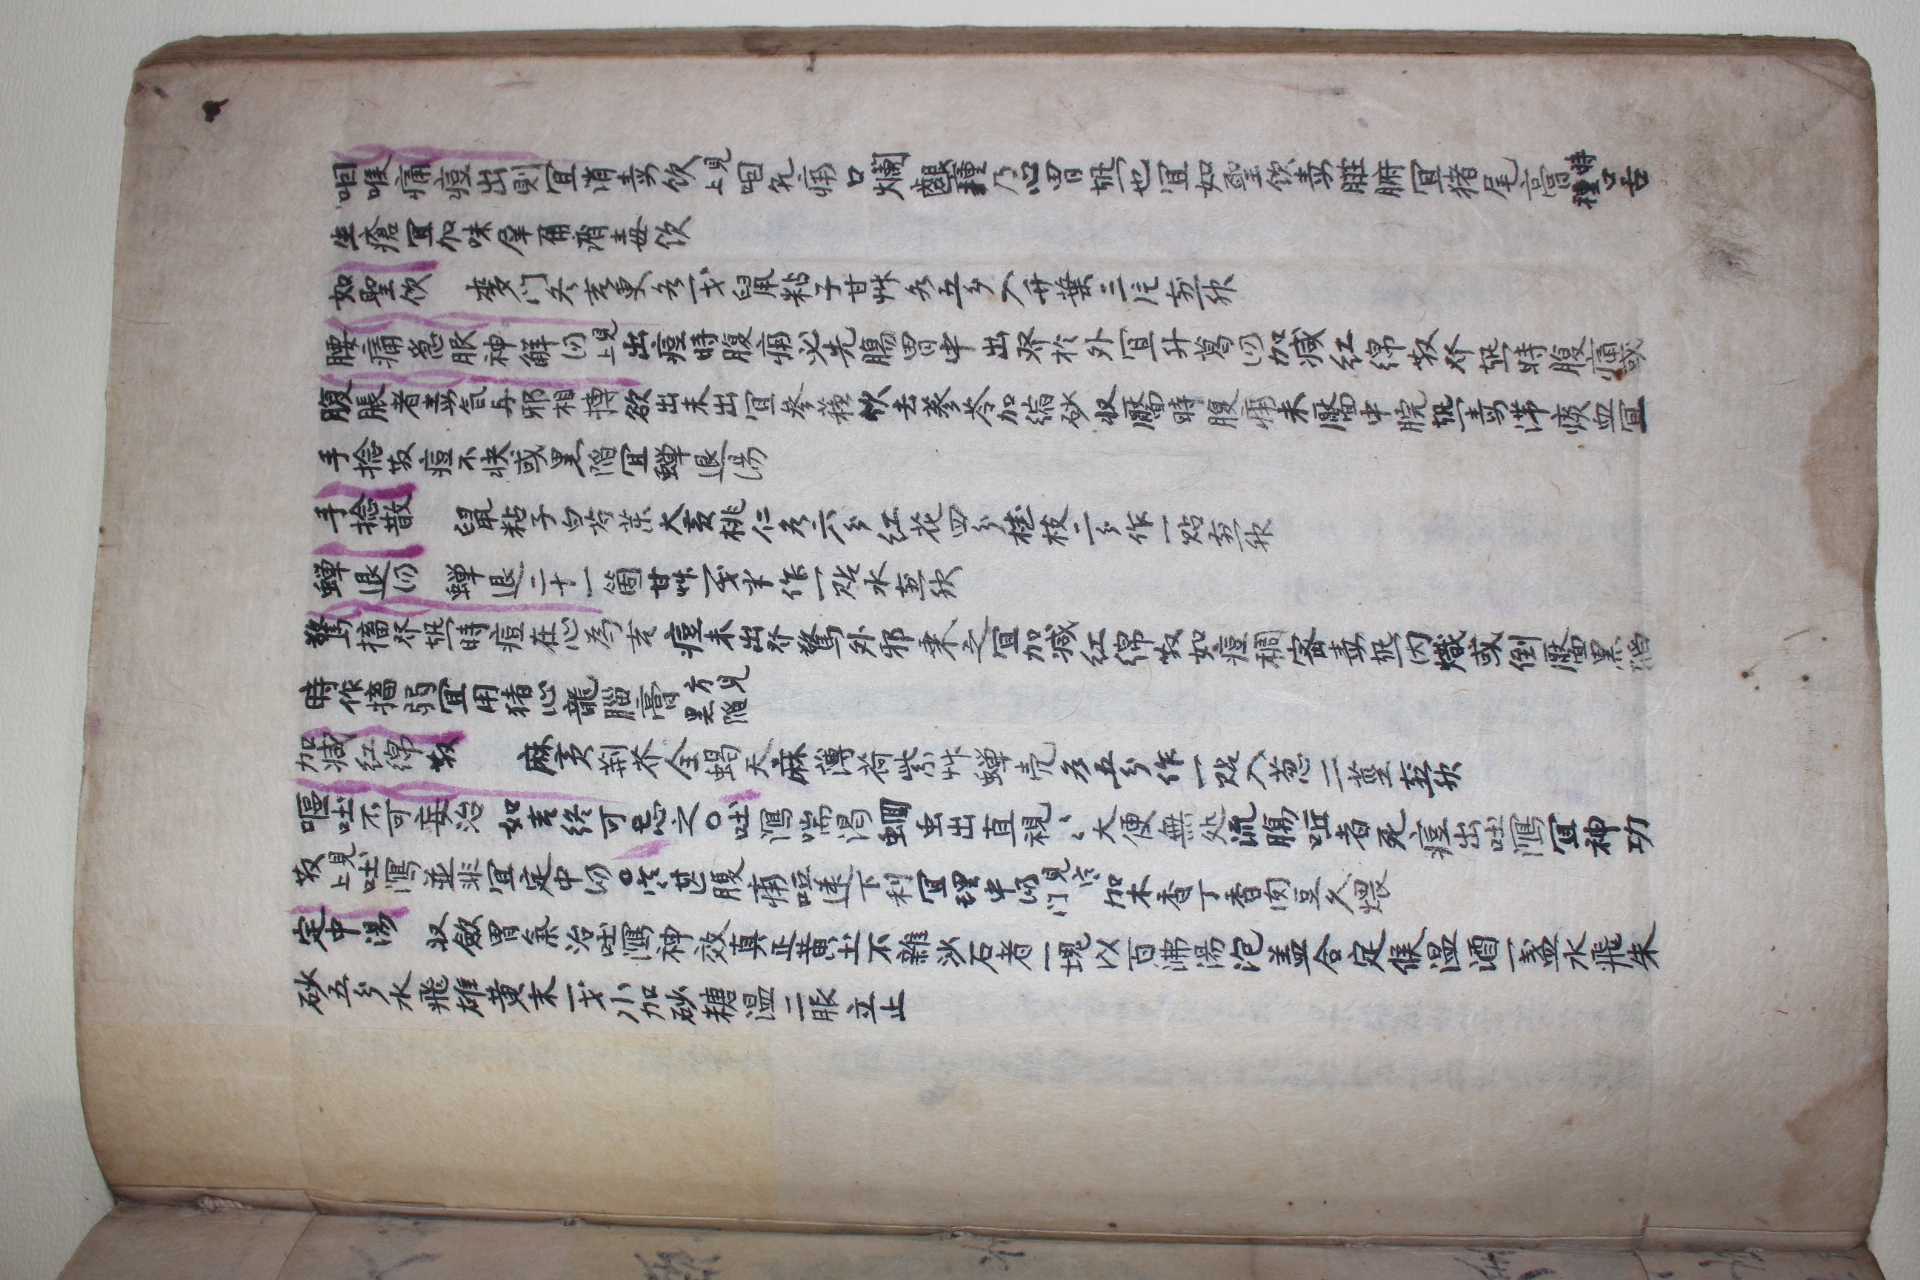 咽喉痛痘出則宜消毒飮上見咽乳痛口爛齦種乃心胃热也宜如聖飮毒臟腑宜猪尾膏時種口舌
生瘡宜加味犀角消毒飮
如聖飮 麥門冬吉更各一戔鼠粘子甘艸各五分入竹葉三片煎服
腰痛急服神解湯上見出痘時腹痛必先腸胃中出發於外宜升葛湯加减紅綿散發热時腹痛或
腹脹者毒氣与邪相搏欲出未出宜參蘇飮去參苓加缩砂收靨時腹痛未靨中脘热毒滯瘀血宜
手捻散痘不快或黑陷宜蟬退湯
手捻散 鼠粘子白芍藥大黃桃仁各六分紅花四分桂枝二分作一貼煎服
蟬退湯 蟬退二十一箇甘艸一戔半作一貼水煎服
驚搐發热時痘在心為吉痘未出發驚外邪乘之宜加减紅綿散如痘稠密毒热內熾或倒靨黑陷
時作搐弱宜用猪心龍腦膏方見黑陷
加减紅綿散 麻黃荊芥全蝎天麻薄荷紫艸蟬壳各五分作一貼入葱二莖煎服
嘔吐不可妄治如吉終可忌之○吐瀉喘渴蛔虫出直視〻大便無处流腸 者死痘出吐瀉宜神功
散上見吐瀉並非宜定中湯○ 甚腹痛 逆下利宜理中湯見 門加木香丁香肉豆久煨
定中湯 収斂胃氣治吐瀉神效真正黃土不雜沙石者一塊以百沸湯泡盖合定候温酒一盞水飛朱
砂五分水飛雄黃末一戔小加砂糖温二服立止